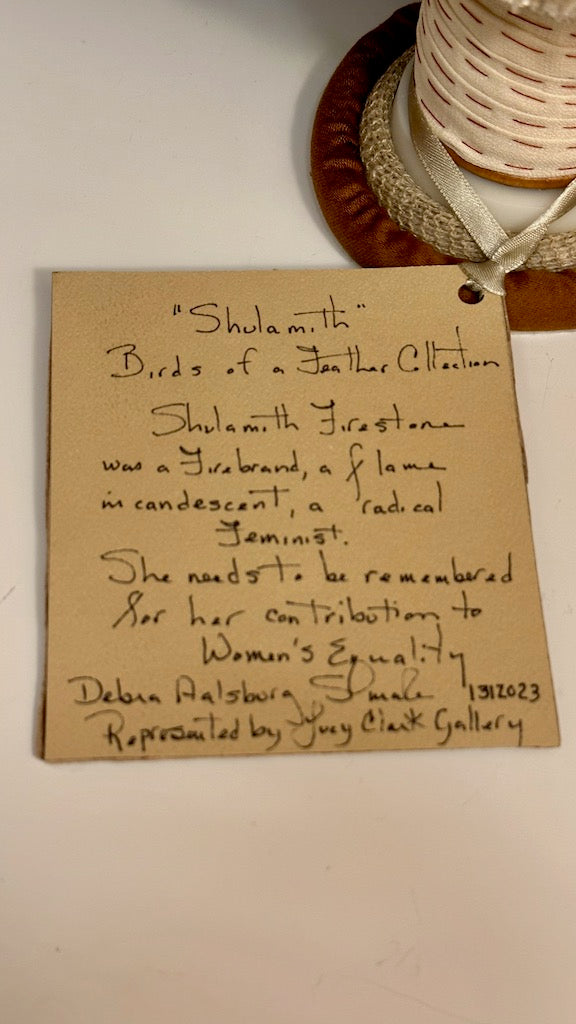 "Shulamith"
Birds of a Feather Collection
Shulamith Firestone
was a Firebrand, a flame
incandescent, a radical
Feminist.
She needs to be remembered
for her contribution to
Women's Equality
Debra Aalsburg 1312023
Represented by Lucy Clark Gallery